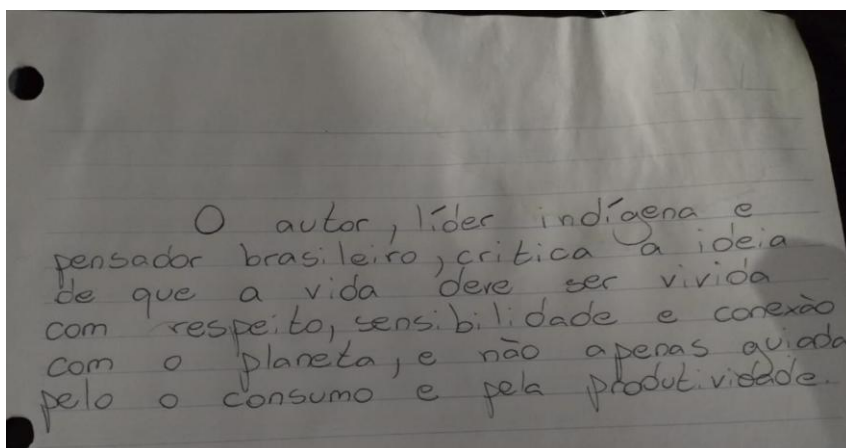 O autor, líder indígena e
pensador brasileiro, critica a ideia
de que a vida deve ser vivida
com respeito, sensibilidade e conexão
com o planeta, e não apenas guiada
pelo o consumo e pela produtividade.